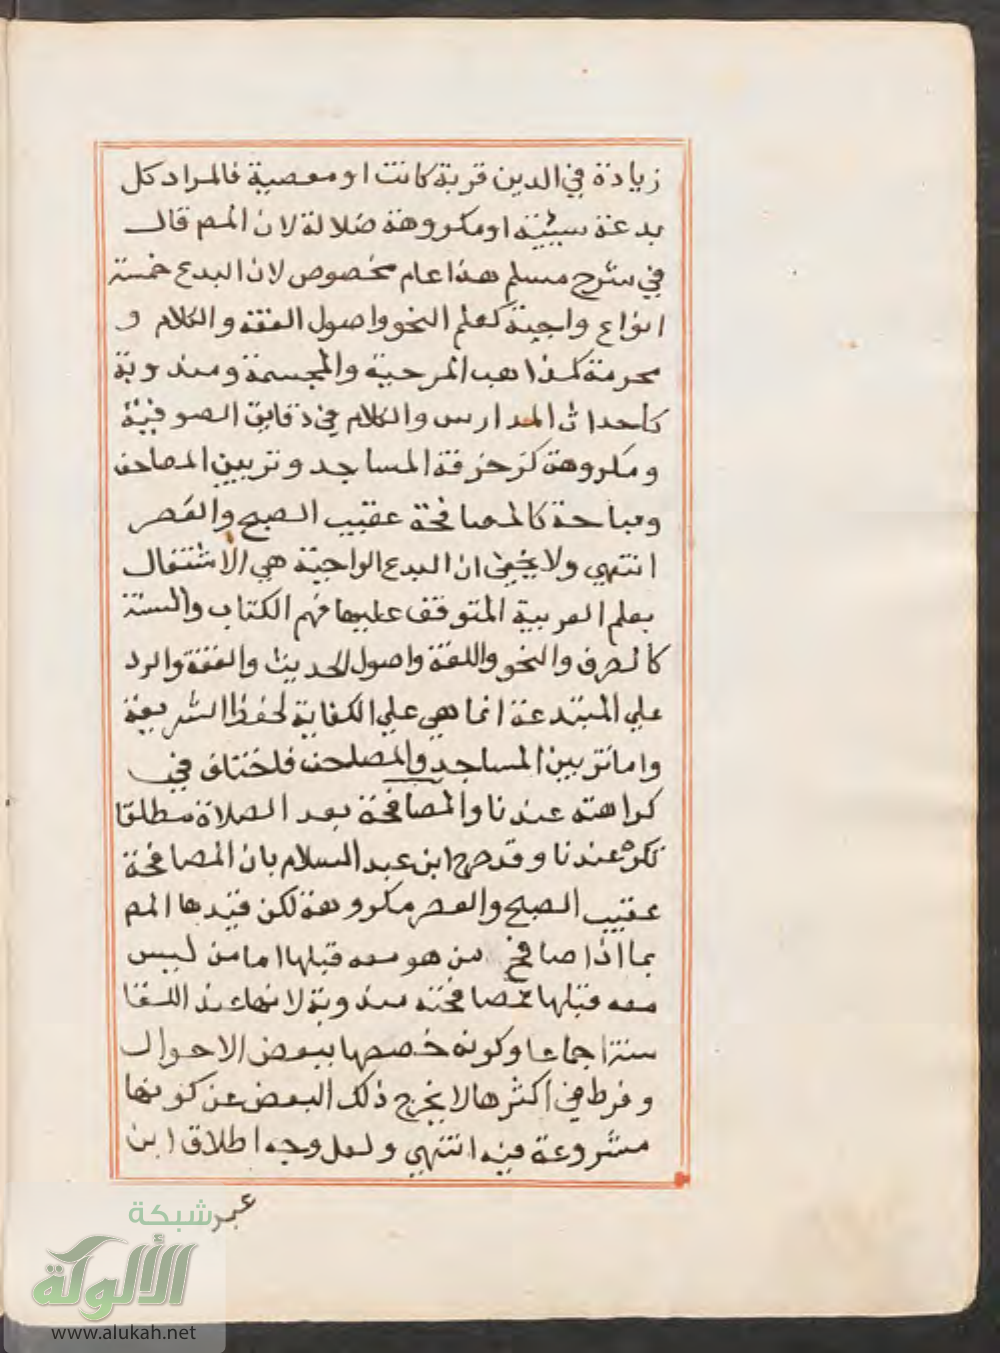 زيادة في الدين قربة كانت او معصية فالمراد كل
بدعة سيئة او مكروهة ضلالة لان المص قال
في شرح مسلم هذا عام مخصوص لان البدع خمسة
انواع واجبة كعلم النحو واصول الفقه والكلام و
محرمة كمذاهب المرجية والمجسمة ومندوبة
كاحداث المدارس والكلام في دقايق الصوفية
ومكروهة كزخرفة المساجد وتزيين المصاحف
ومباحة كالمصافحة عقيب الصبح والعصر
انتهي ولا يخفي ان البدع الواجبة هي الاشتغال
بعلم العربية المتوقف عليها فهم الكتاب والسنة
كالصرف والنحو واللغة واصول الحديث والفقه والرد
علي المبتدعة انما هي علي الكفاية لحفظ الشريعة
واما تزيين المساجد والمصاحف فلختلف في
كراهته عندنا والمصافحة بعد الصلاة مطلقا
تكره عندنا وقد صرح ابن عبد السلام بان المصافحة
عقيب الصبح والعصر مكروهة لكن قيدها المص
بما اذا صافح من هو معه قبلها اما من ليس
معه قبلها فمصافحته مندوبة لانها عند اللقا
سنة اجماعا وكونه خصصها ببعض الاحوال
وفرط في اكثرها لا يخرج ذلك البعض عن كونها
مشروعة فيه انتهي ولعل وجه اطلاق ابن
عبد
شبكة
الألوكة
www.alukah.net